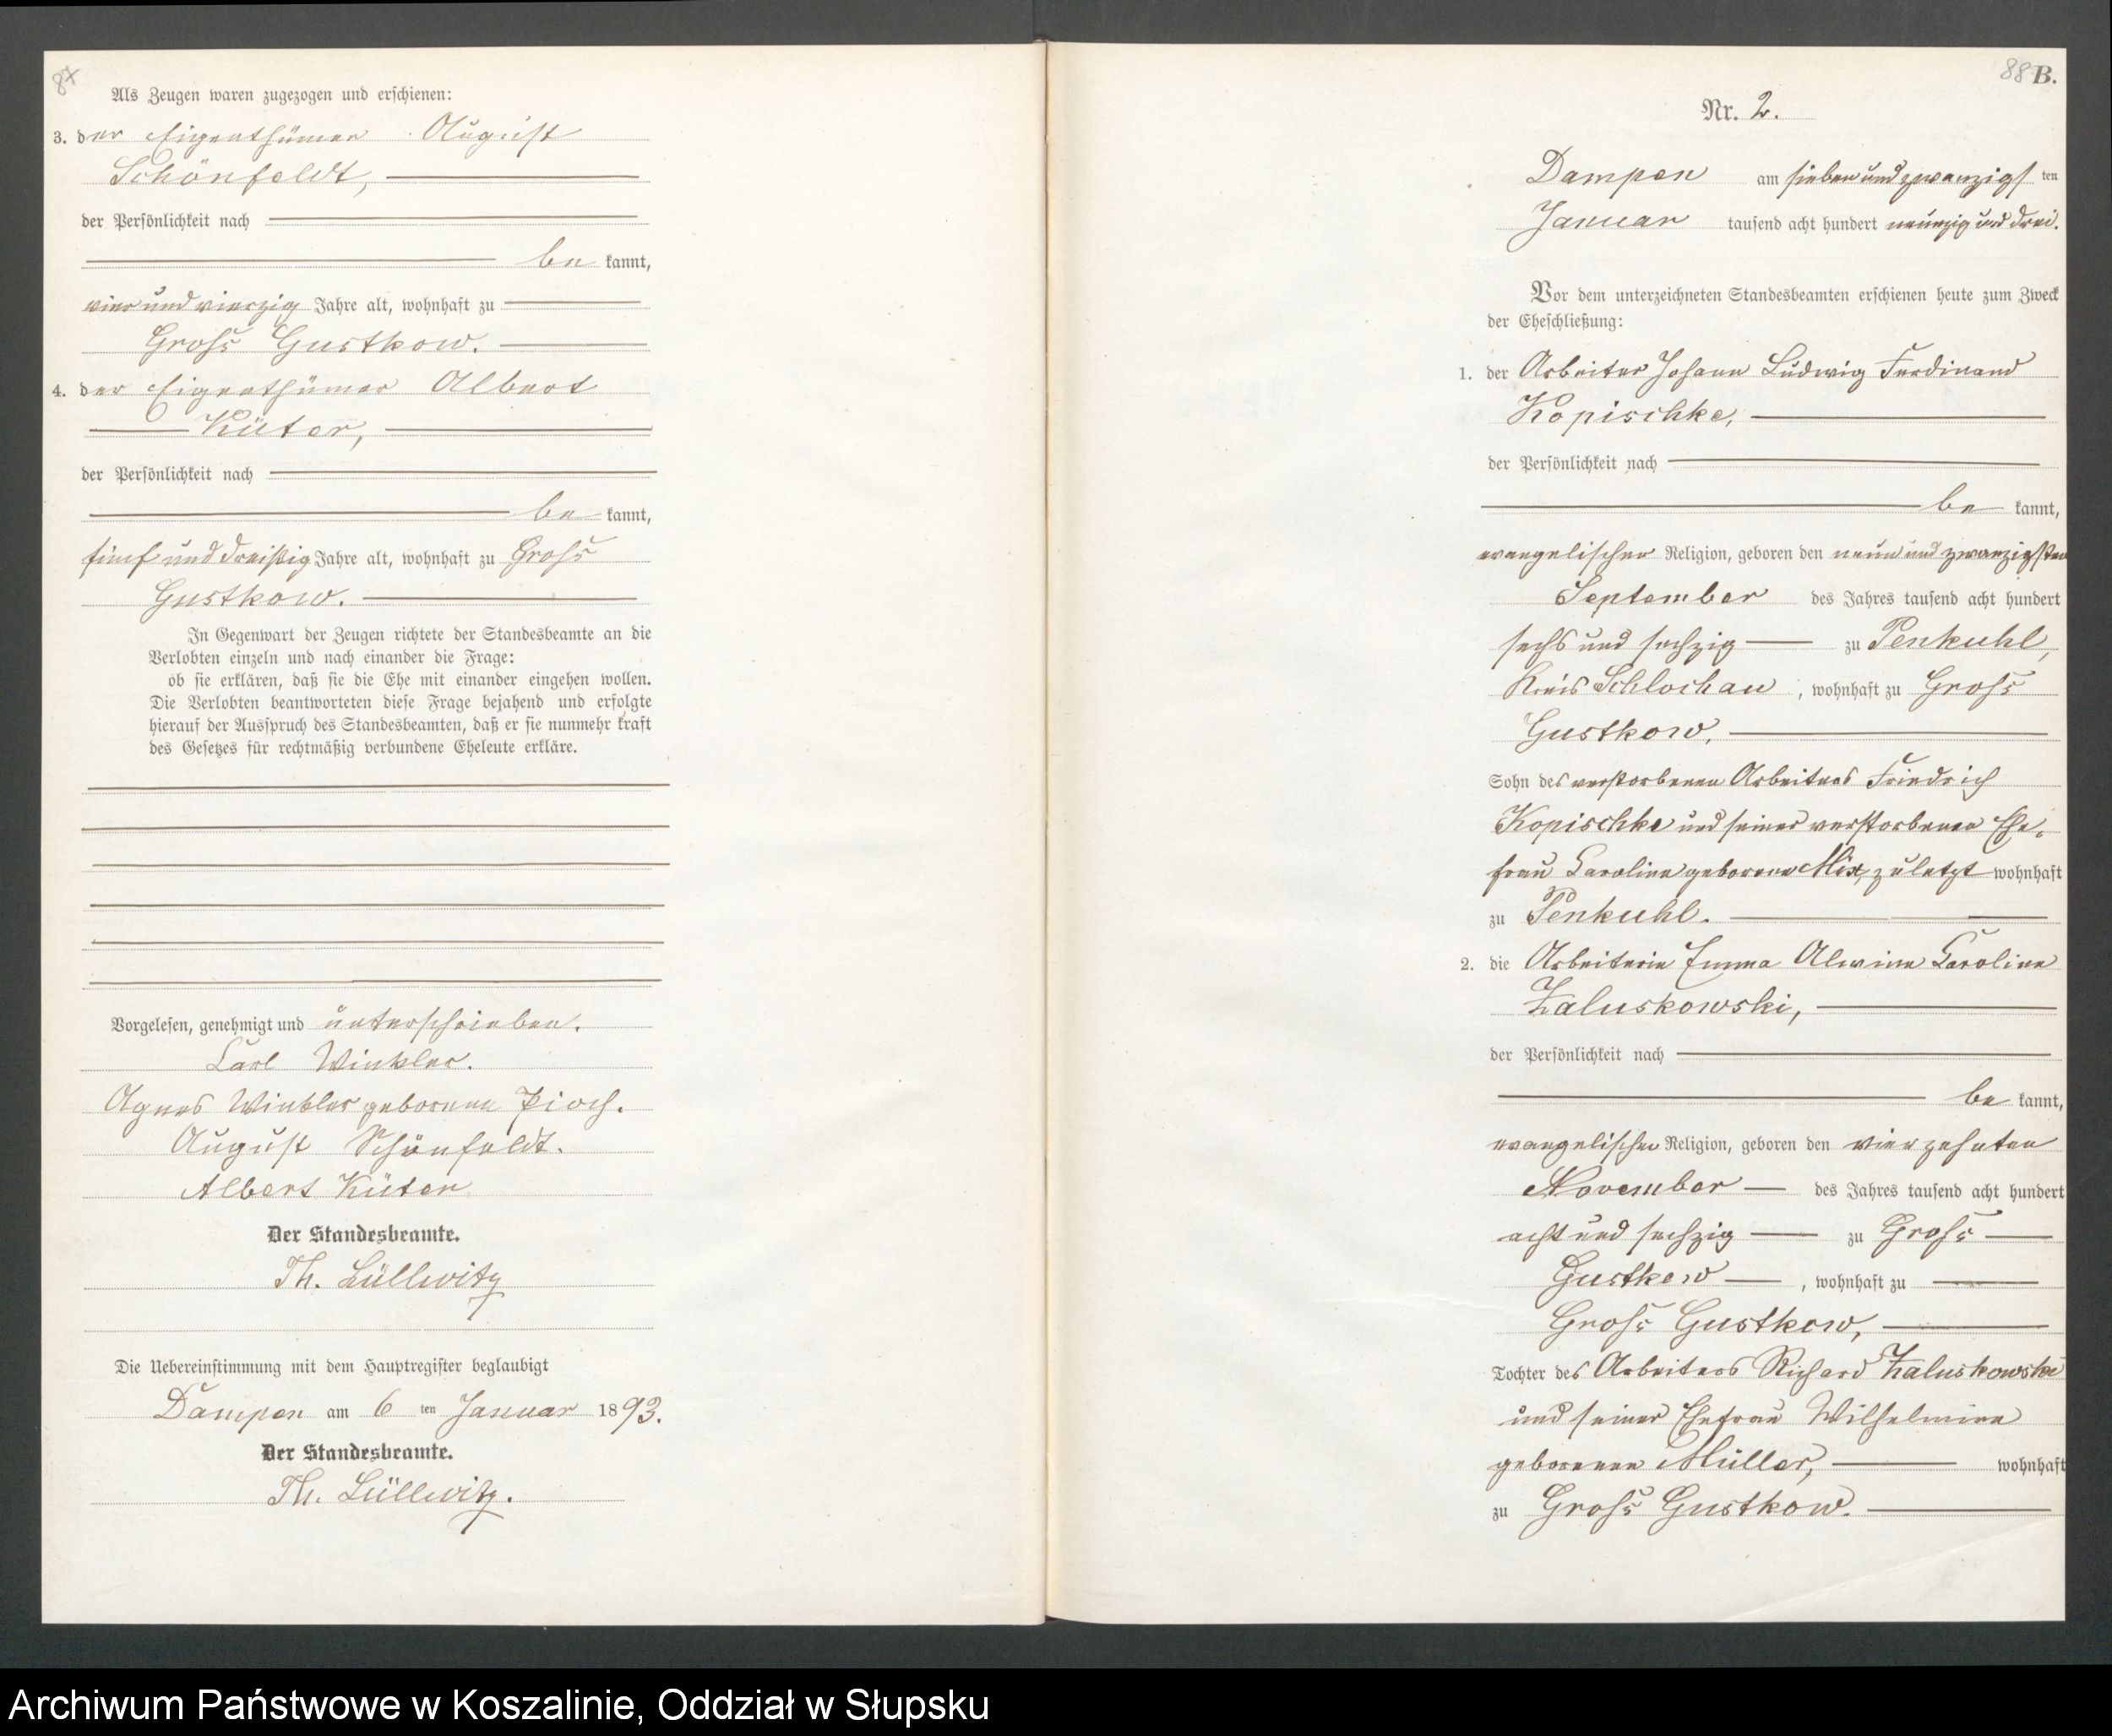 87
Als Zeugen waren zugezogen und erschienen:
3. der Eigenthümer August
Schönfeldt,
der Persönlichkeit nach
be kannt,
vier und vierzig Jahre alt, wohnhaft zu
Gross Gustkow.
4. der Eigenthümer Albert
Küter,
der Persönlichkeit nach
be kannt,
fünf und dreißig Jahre alt, wohnhaft zu Gross
Gustkow.
In Gegenwart der Zeugen richtete der Standesbeamte an die
Verlobten einzeln und nach einander die Frage:
ob sie erklären, daß sie die Ehe mit einander eingehen wollen.
Die Verlobten beantworteten diese Frage bejahend und erfolgte
hierauf der Ausspruch des Standesbeamten, daß er sie nunmehr kraft
des Gesetzes für rechtmäßig verbundene Eheleute erkläre.
Vorgelesen, genehmigt und unterschrieben.
Carl Winkler.
Agnes Winkler geborene Pioch.
August Schönfeldt.
Albert Küter
Der Standesbeamte.
Th. Lüllwitz
Die Uebereinstimmung mit dem Hauptregister beglaubigt
Dampen am 6 ten Januar 1893.
Der Standesbeamte.
Th. Lüllwitz.
88 B.
Nr. 2.
Dampen am sieben und zwanzigs ten
Januar tausend acht hundert neunzig und drei.
Vor dem unterzeichneten Standesbeamten erschienen heute zum Zweck
der Eheschließung:
1. der Arbeiter Johann Ludwig Ferdinand
Kopischke,
der Persönlichkeit nach
be kannt,
evangelischer Religion, geboren den neun und zwanzigsten
September des Jahres tausend acht hundert
sechs und sechzig zu Penkuhl,
Kreis Schlochau, wohnhaft zu Gross
Gustkow,
Sohn des verstorbenen Arbeiters Friedrich
Kopischke und seiner verstorbenen Ehe-
frau Caroline geborene Mix, zuletzt wohnhaft
zu Penkuhl.
2. die Arbeiterin Emma Alwine Caroline
Zaluskowski,
der Persönlichkeit nach
be kannt,
evangelischer Religion, geboren den vierzehnten
November des Jahres tausend acht hundert
acht und sechzig zu Gross
Gustkow, wohnhaft zu
Gross Gustkow,
Tochter des Arbeiters Richard Zaluskowski
und seiner Ehefrau Wilhelmine
geborenen Müller, wohnhaft
zu Gross Gustkow.
Archiwum Państwowe w Koszalinie, Oddział w Słupsku